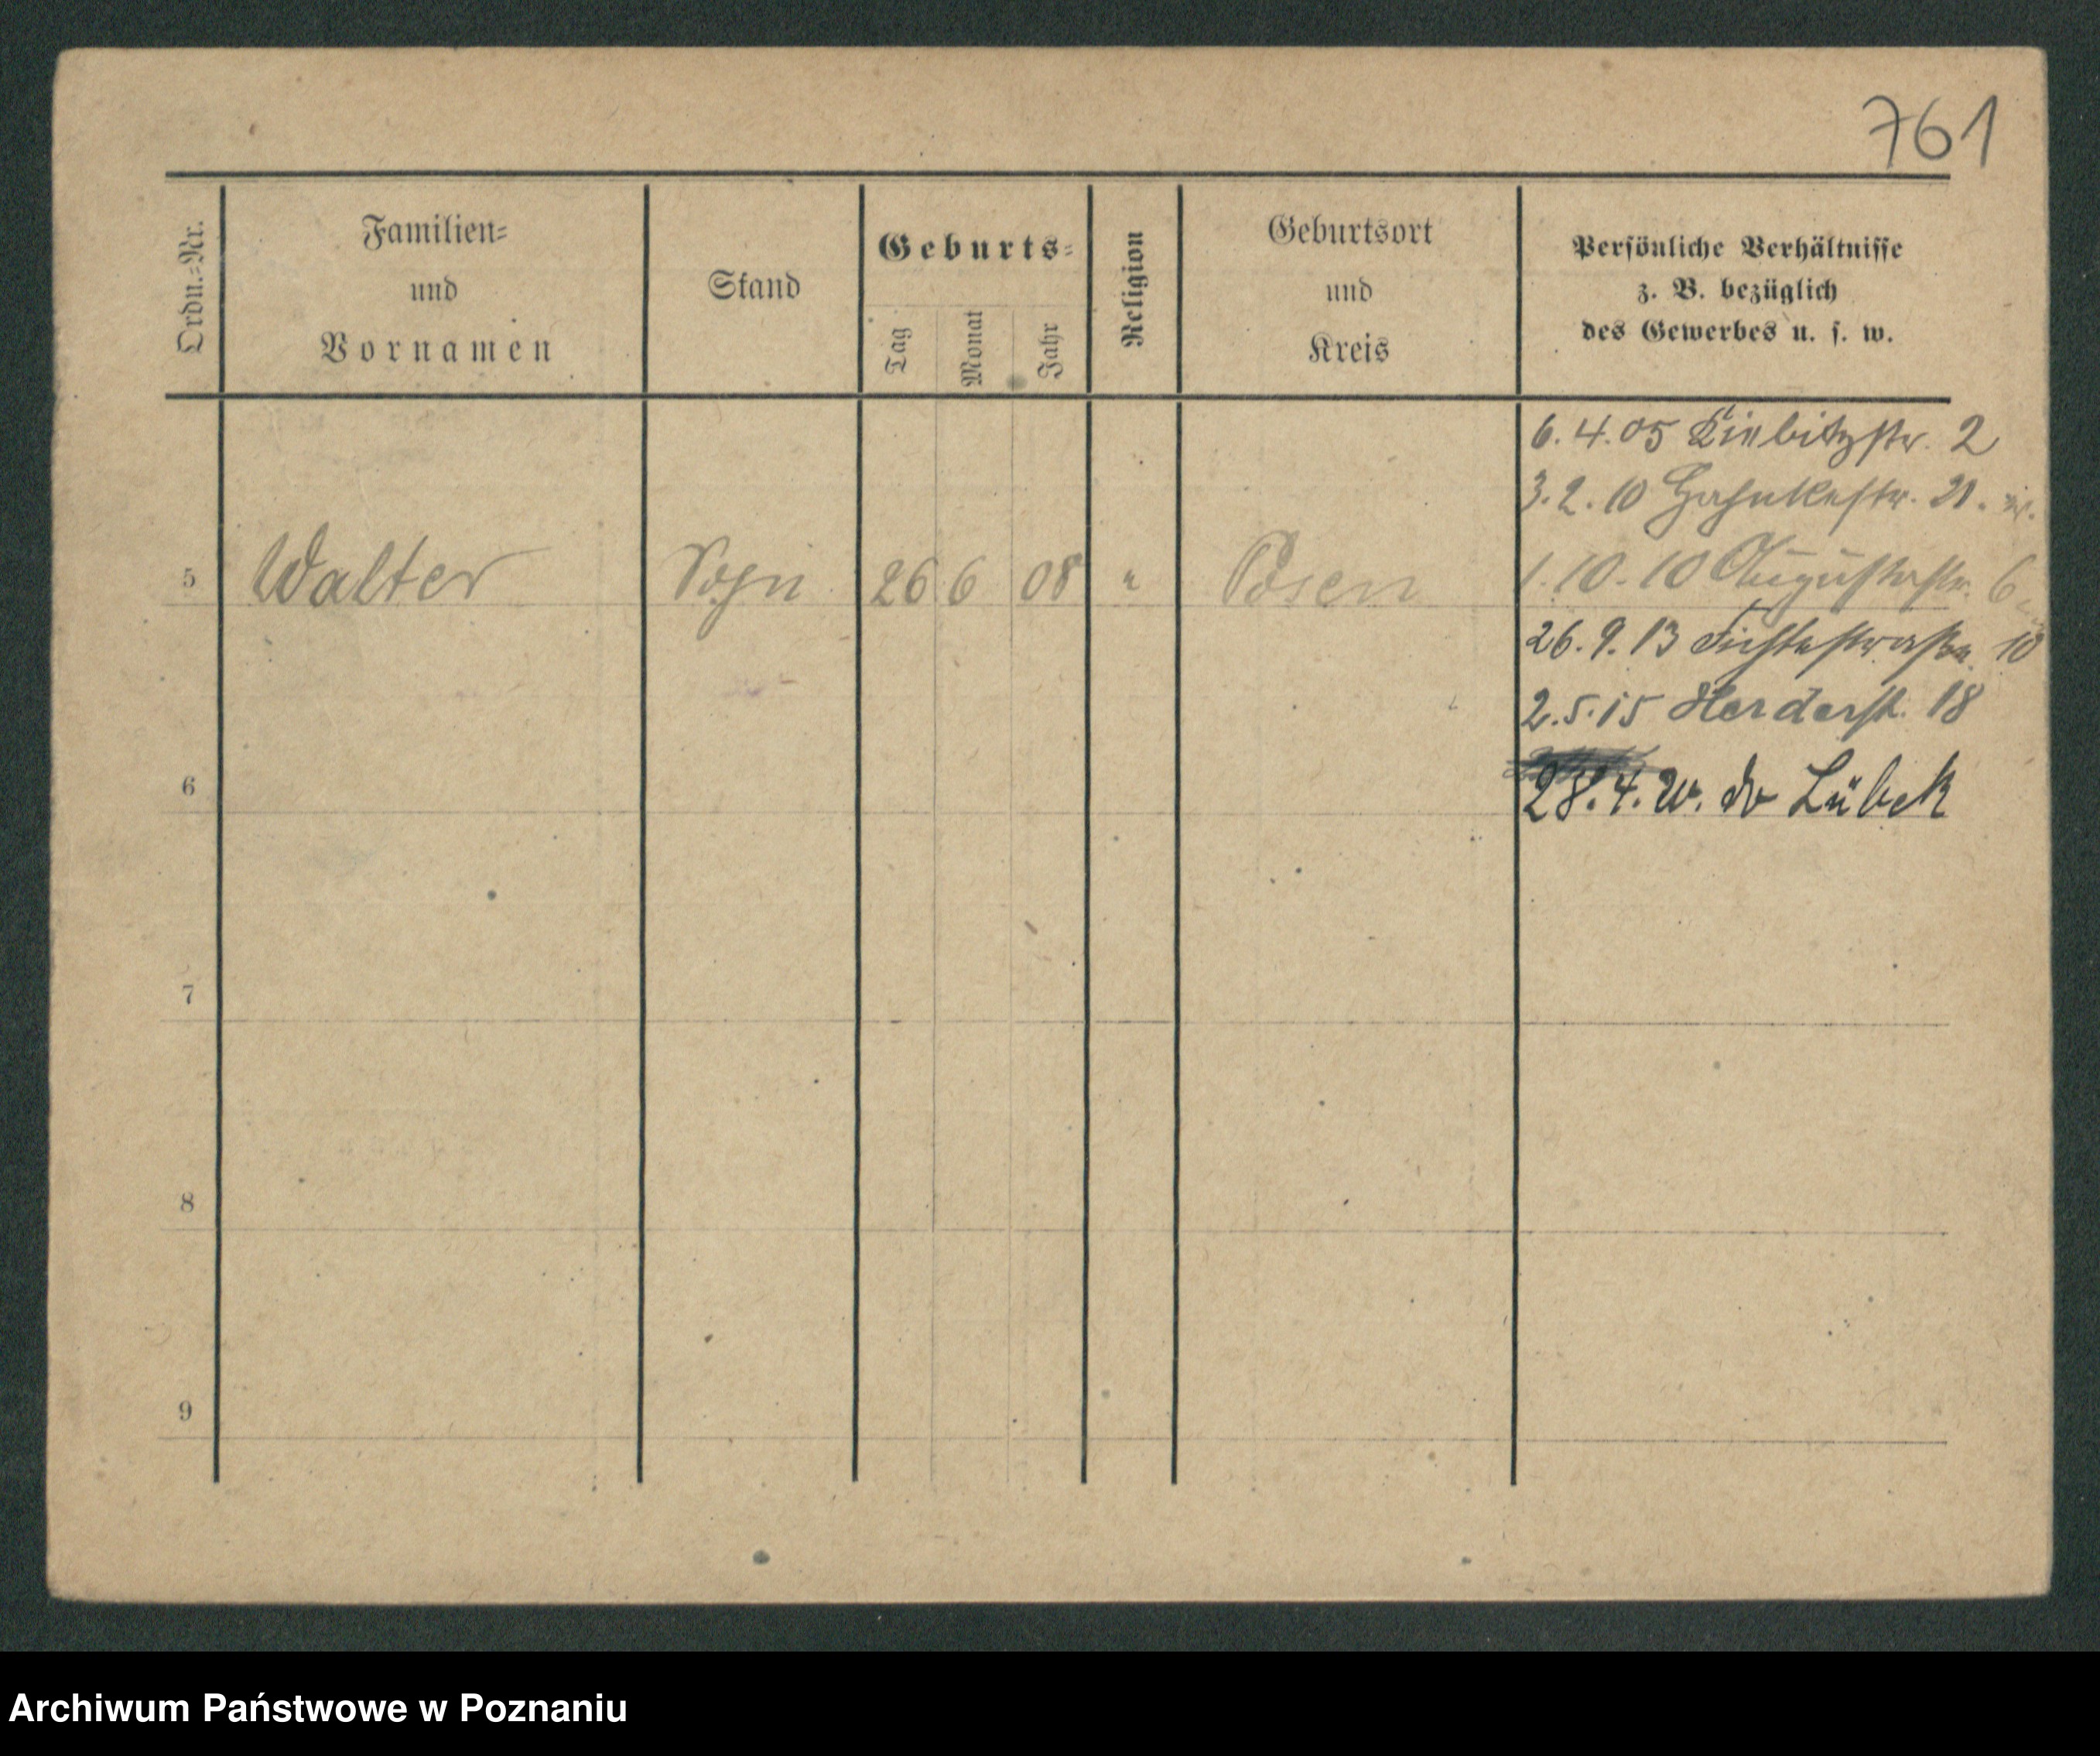 761
Ordn.=Nr.
Familien=
und
Vornamen
Stand
Geburts=
Tag
Monat
Jahr
Religion
Geburtsort
und
Kreis
Persönliche Verhältnisse
z. B. bezüglich
des Gewerbes u. s. w.
6. 4. 05 Kiebitzstr. 2
3. 2. 10 Hohnkestr. 21.
5 Walter Sohn 26 6 08 " Posen
1. 10. 10 Augustastr. 6
26. 9. 13 Fichtestraße 10
2. 5. 15 Herderst. 18
6
28. 4. 20. do Lübek
7
8
9
Archiwum Państwowe w Poznaniu